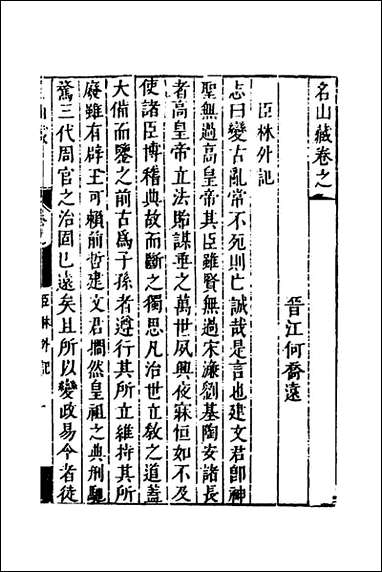 名山藏卷之
晋江何喬遠
臣林外記
志曰變古亂常不死則亡誠哉是言也建文君卽神
聖無過高皇帝其臣雖賢無過宋濂劉基陶安諸長
者高皇帝立法貽謀垂之萬世夙興夜寐恒如不及
使諸臣博稽典故而斷之獨思凡治世立敎之道蓋
大備而鑒之前古爲子孫者遵行其所立維持其所
廢雖有辟王可賴前哲建文君攔然皇祖之典刑馳
騖三代周官之治固已遠矣且所以變政易今者徒
臣林外記
一